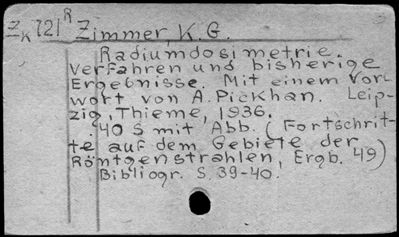 Zk 721R Zimmer K.G.
Radiumdosimetrie.
Verfahren und bisherige
Ergebnisse. Mit einem Vor-
wort von A. Pickhan. Leip-
zig, Thieme, 1936.
40 S mit Abb. (Fortschrit-
te auf dem Gebiete der
Röntgenstrahlen, Ergb. 49)
Bibliogr. S. 39-40.